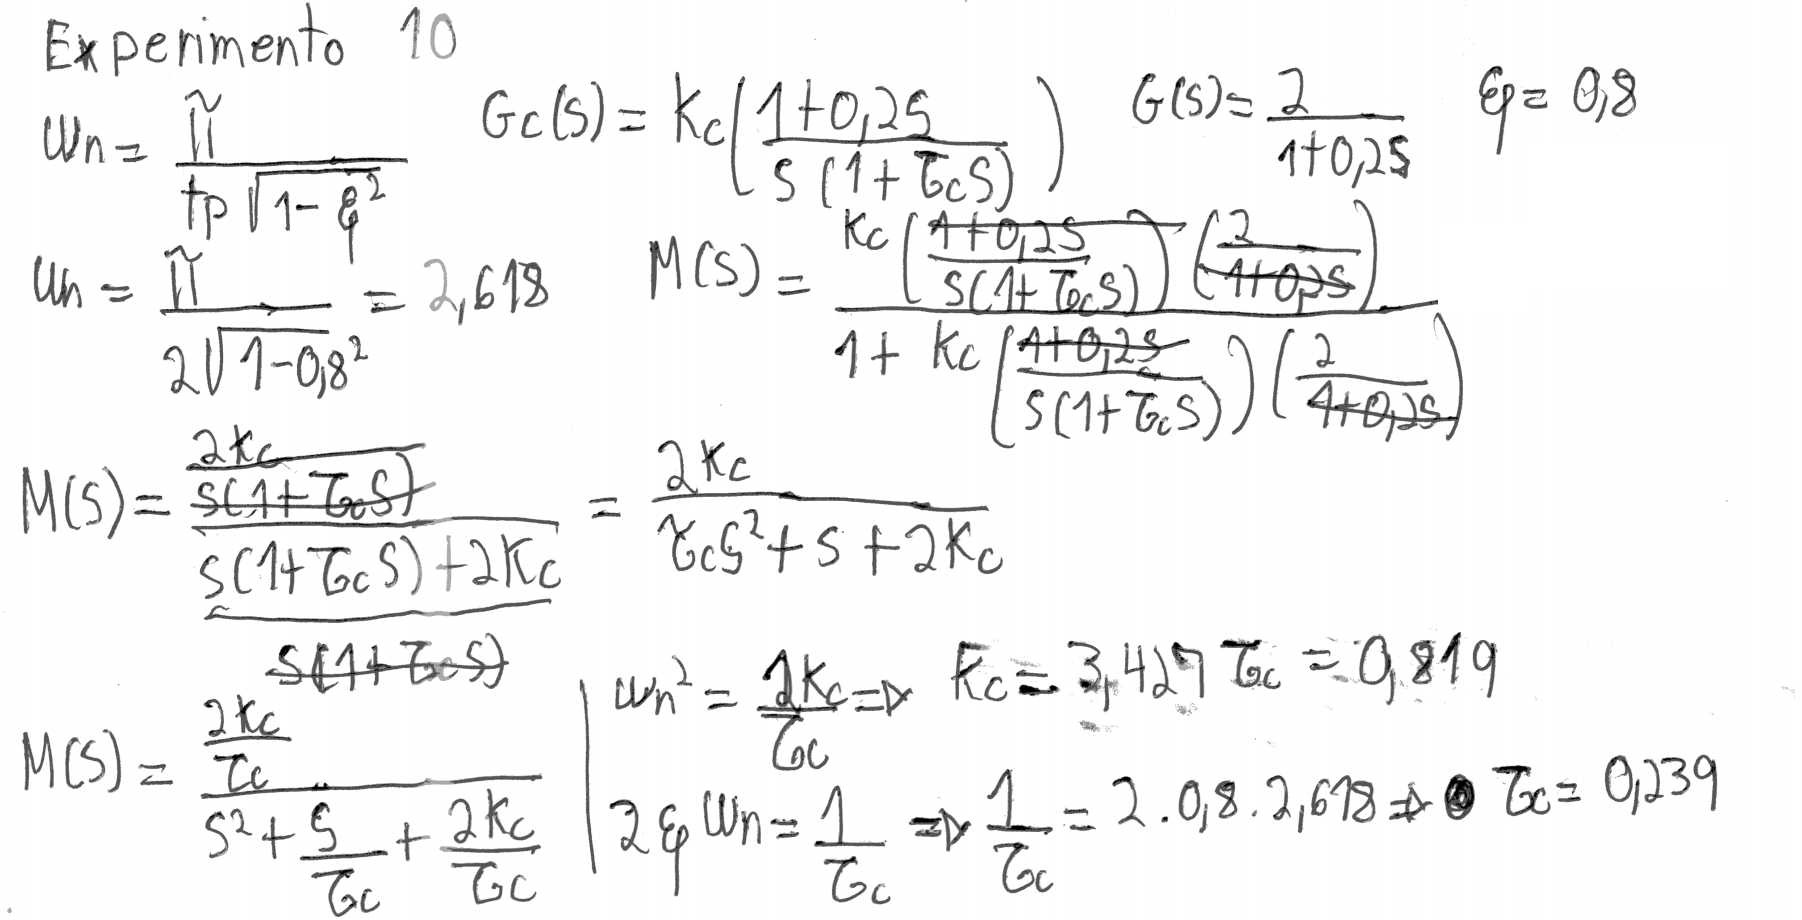 Experimento 10
Wn = π / (tp √(1-ξ²))
Gc(s) = Kc((1+0,2s) / (s(1+τcs)))
G(s) = 2 / (1+0,2s)
ξ = 0,8
Wn = π / (2√(1-0,8²)) = 2,618
M(s) = Kc((1+0,2s) / (s(1+τcs)))(2 / (1+0,2s)) / (1 + Kc((1+0,2s) / (s(1+τcs)))(2 / (1+0,2s)))
M(s) = (2Kc / (s(1+τcs))) / ((s(1+τcs)+2Kc) / (s(1+τcs))) = 2Kc / (τcs²+s+2Kc)
M(s) = (2Kc / τc) / (s² + s/τc + 2Kc/τc)
Wn² = 2Kc / τc => Kc = 3,427 τc = 0,819
2ξWn = 1/τc => 1/τc = 2.0,8.2,618 => τc = 0,239